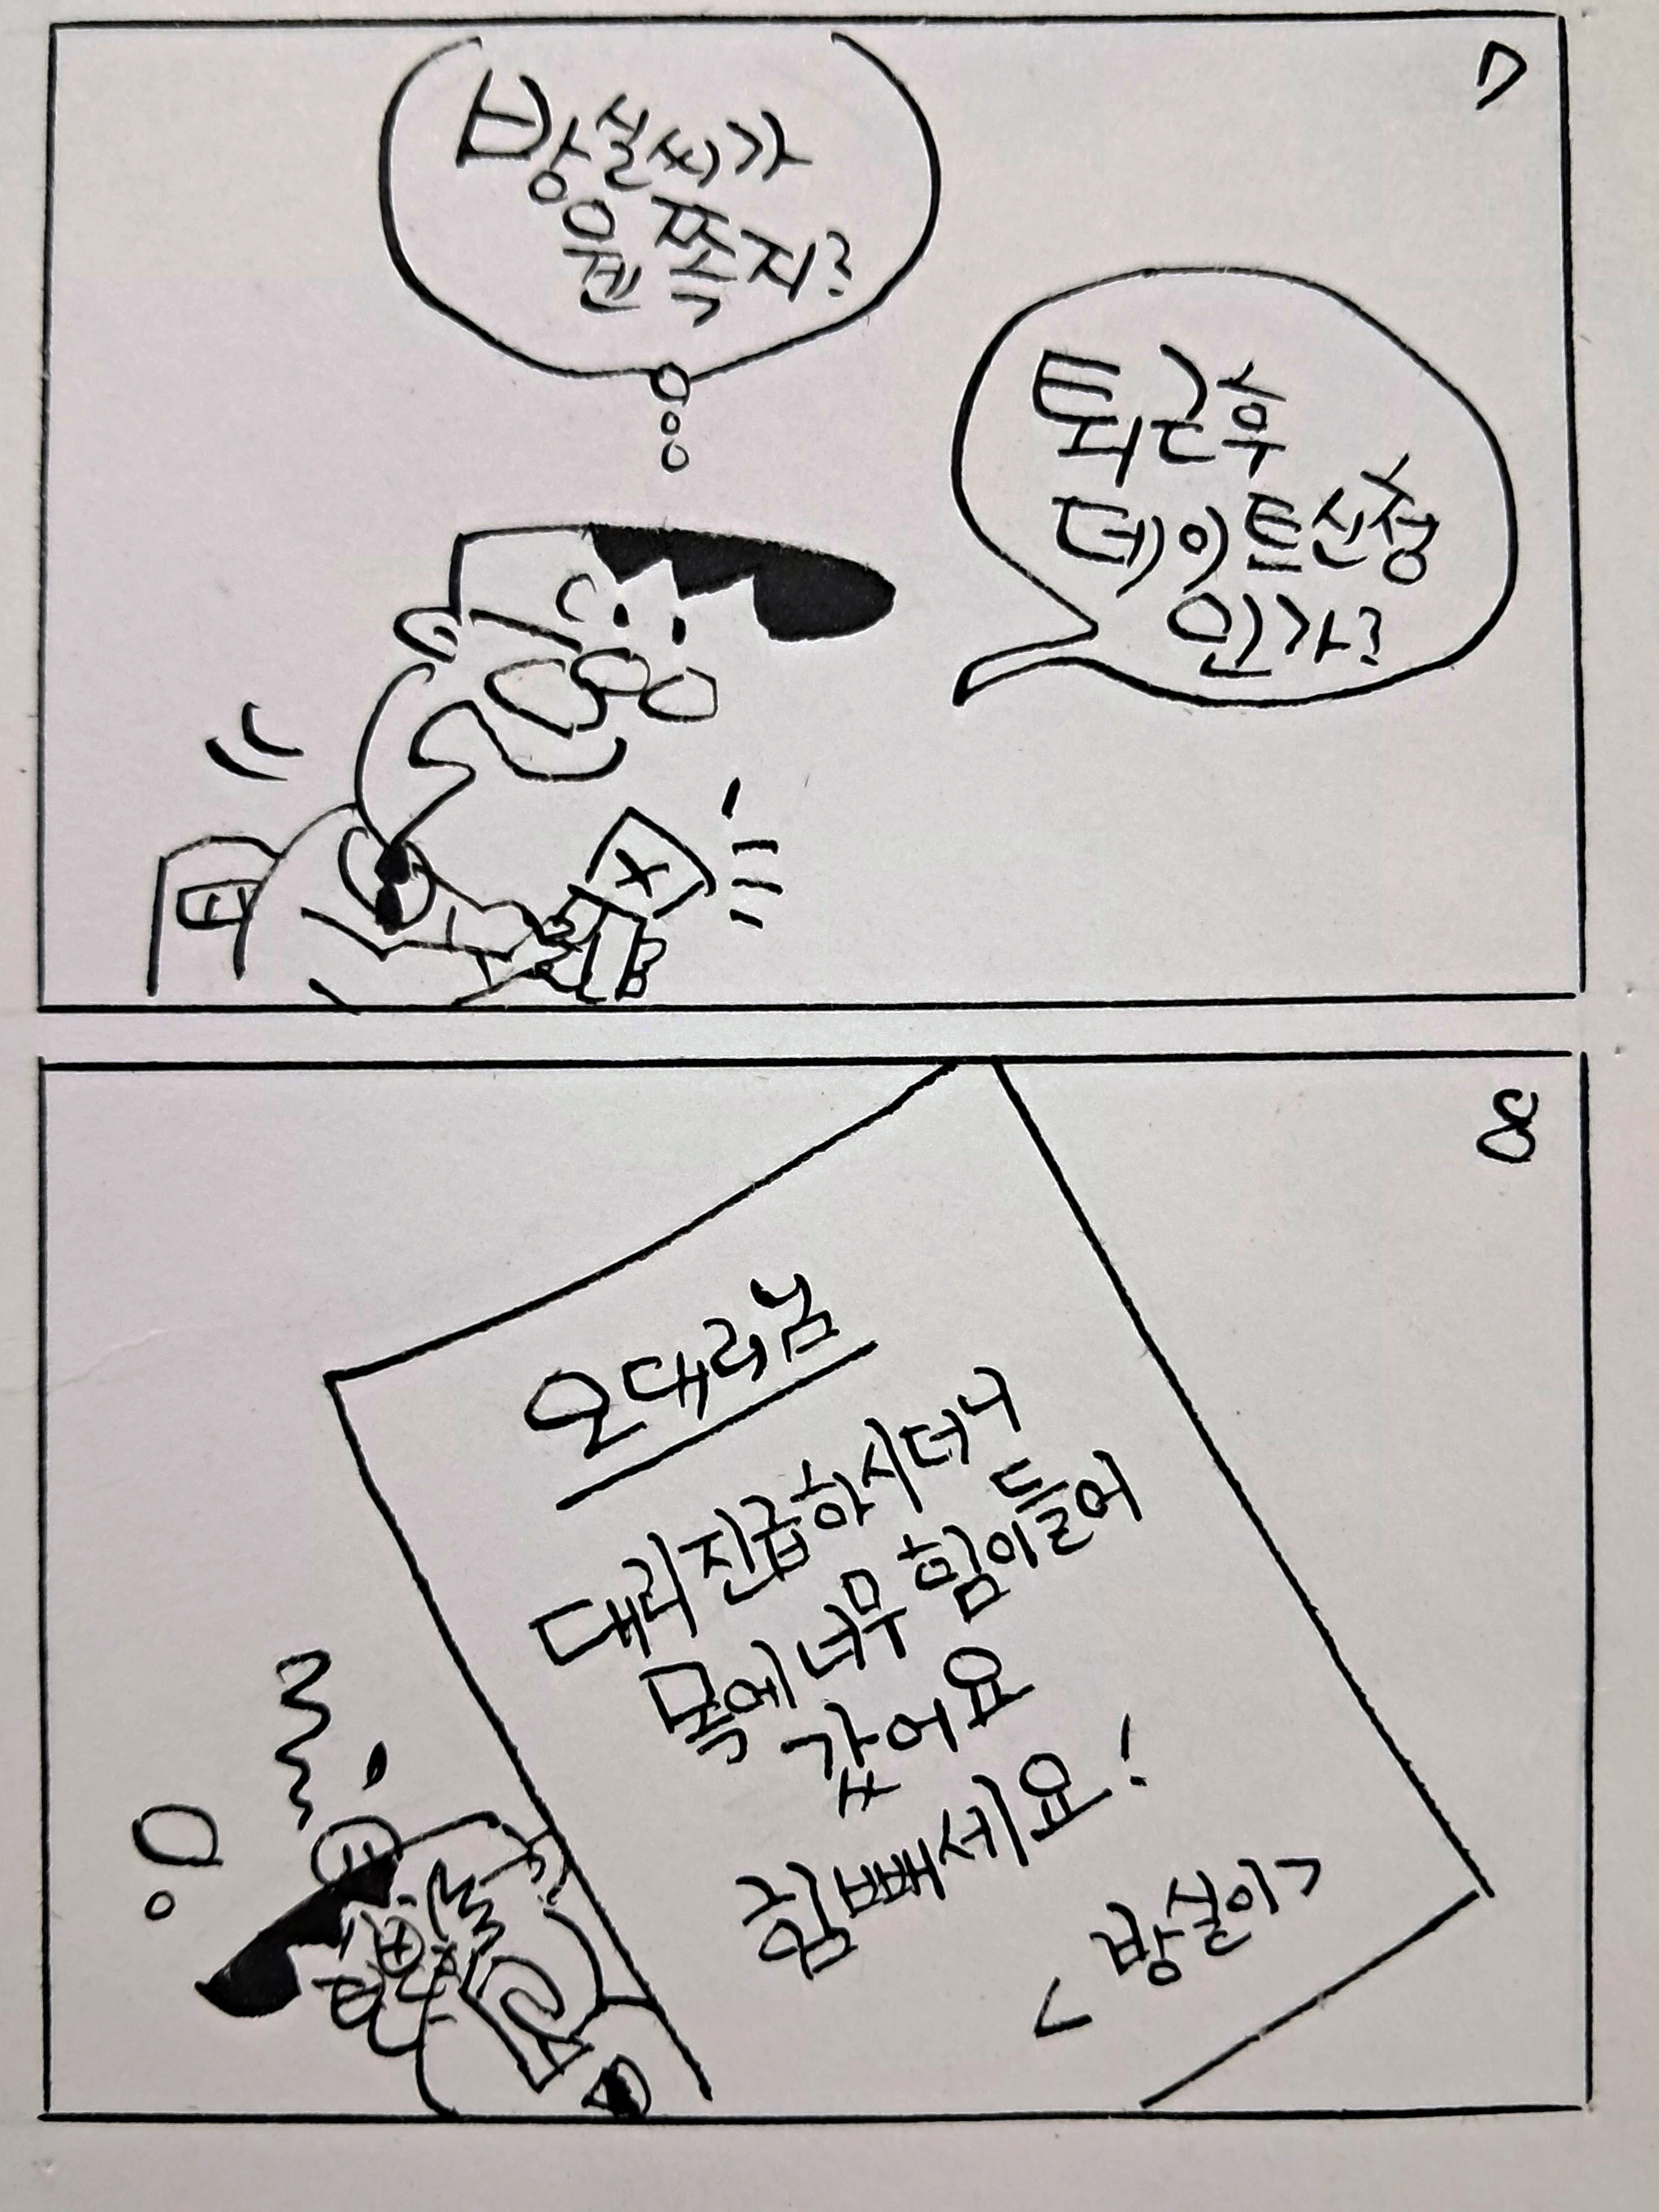 7
방실씨가
웬 쪽지?
퇴근후
데이트신청
인가?
8
오대리님
대리 진급하시더니
목에 너무 힘이 들어
갔어요
힘빼세요!
<방실이>